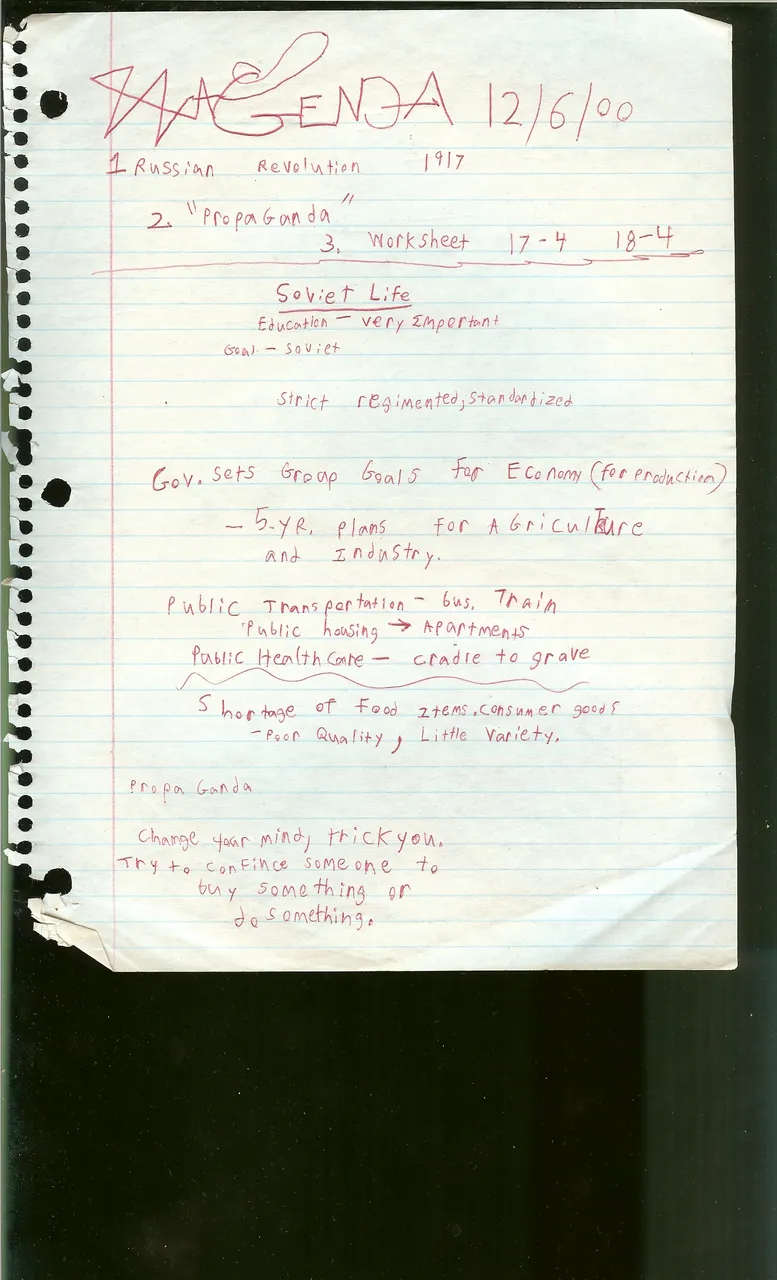 AGENDA 12/6/00
1 Russian Revolution 1917
2. "Propaganda"
3. Worksheet 17-4 18-4
Soviet Life
Education - very Important
Goal - Soviet
Strict regimented, standardized
Gov. sets Group Goals for Economy (for production)
- 5-YR. plans for AGriculTure
and Industry.
Public Transportation - bus. Train
Public housing → Apartments
Public HealthCare - cradle to grave
Shortage of Food Items. consumer goods
- Poor Quality, Little Variety.
PropaGanda
Change your mind, trick you.
Try to confince someone to
buy something or
do something.